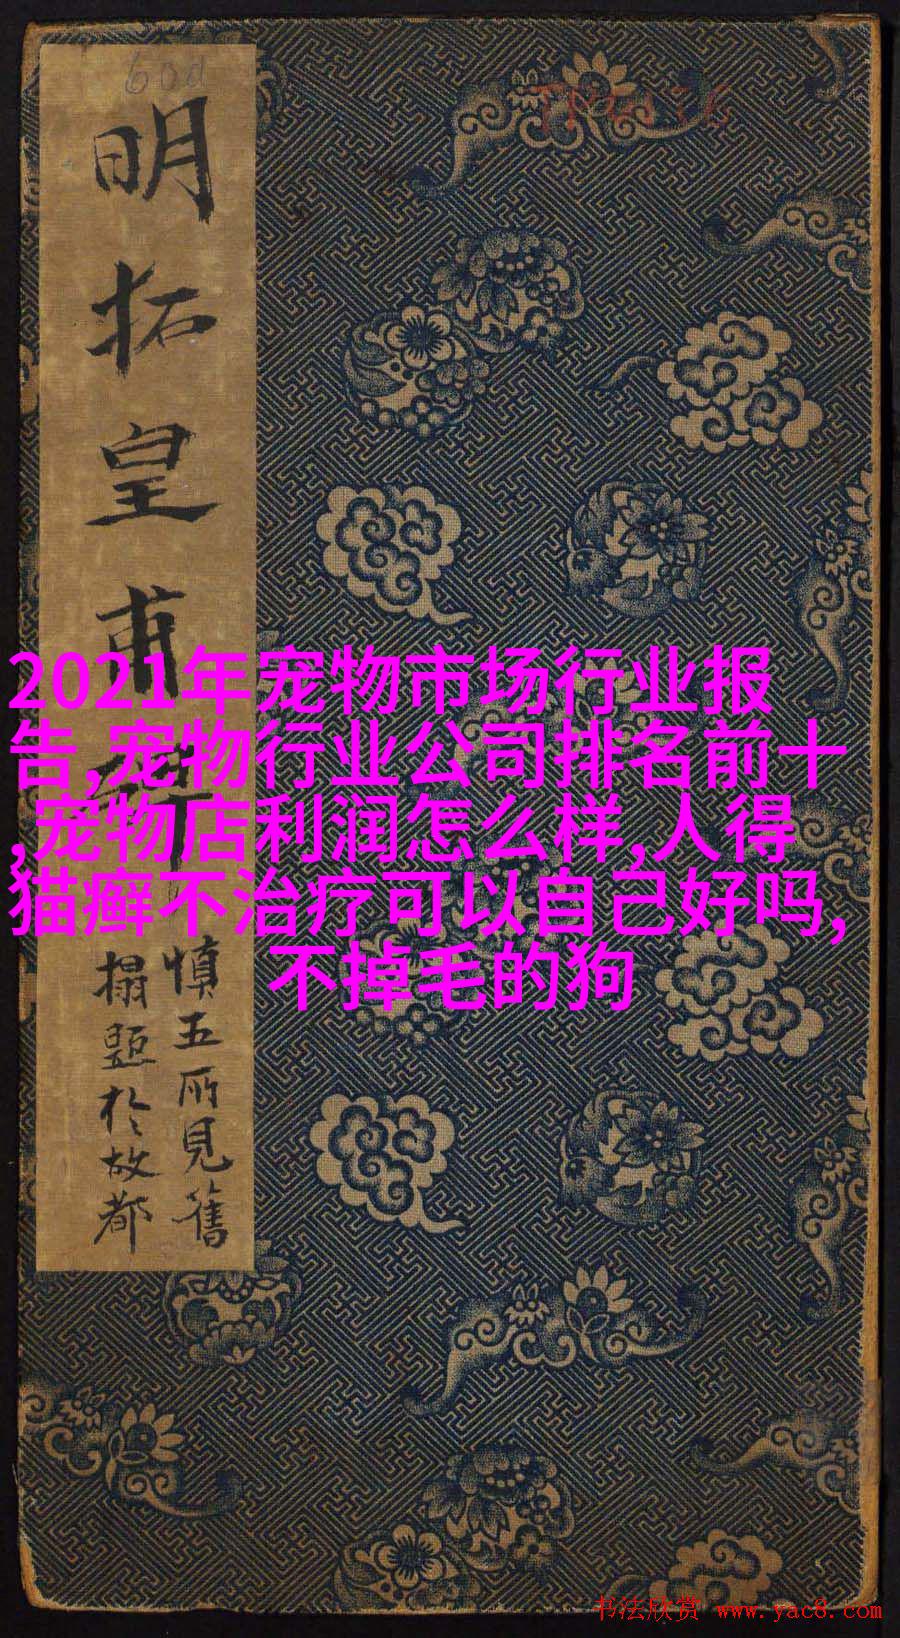 600
明拓皇甫
慎五所見舊
搨題於故都
2021年宠物市场行业报
告,宠物行业公司排名前十
,宠物店利润怎么样,人得
猫癣不治疗可以自己好吗,
不掉毛的狗
书法欣赏 www.yac8.com